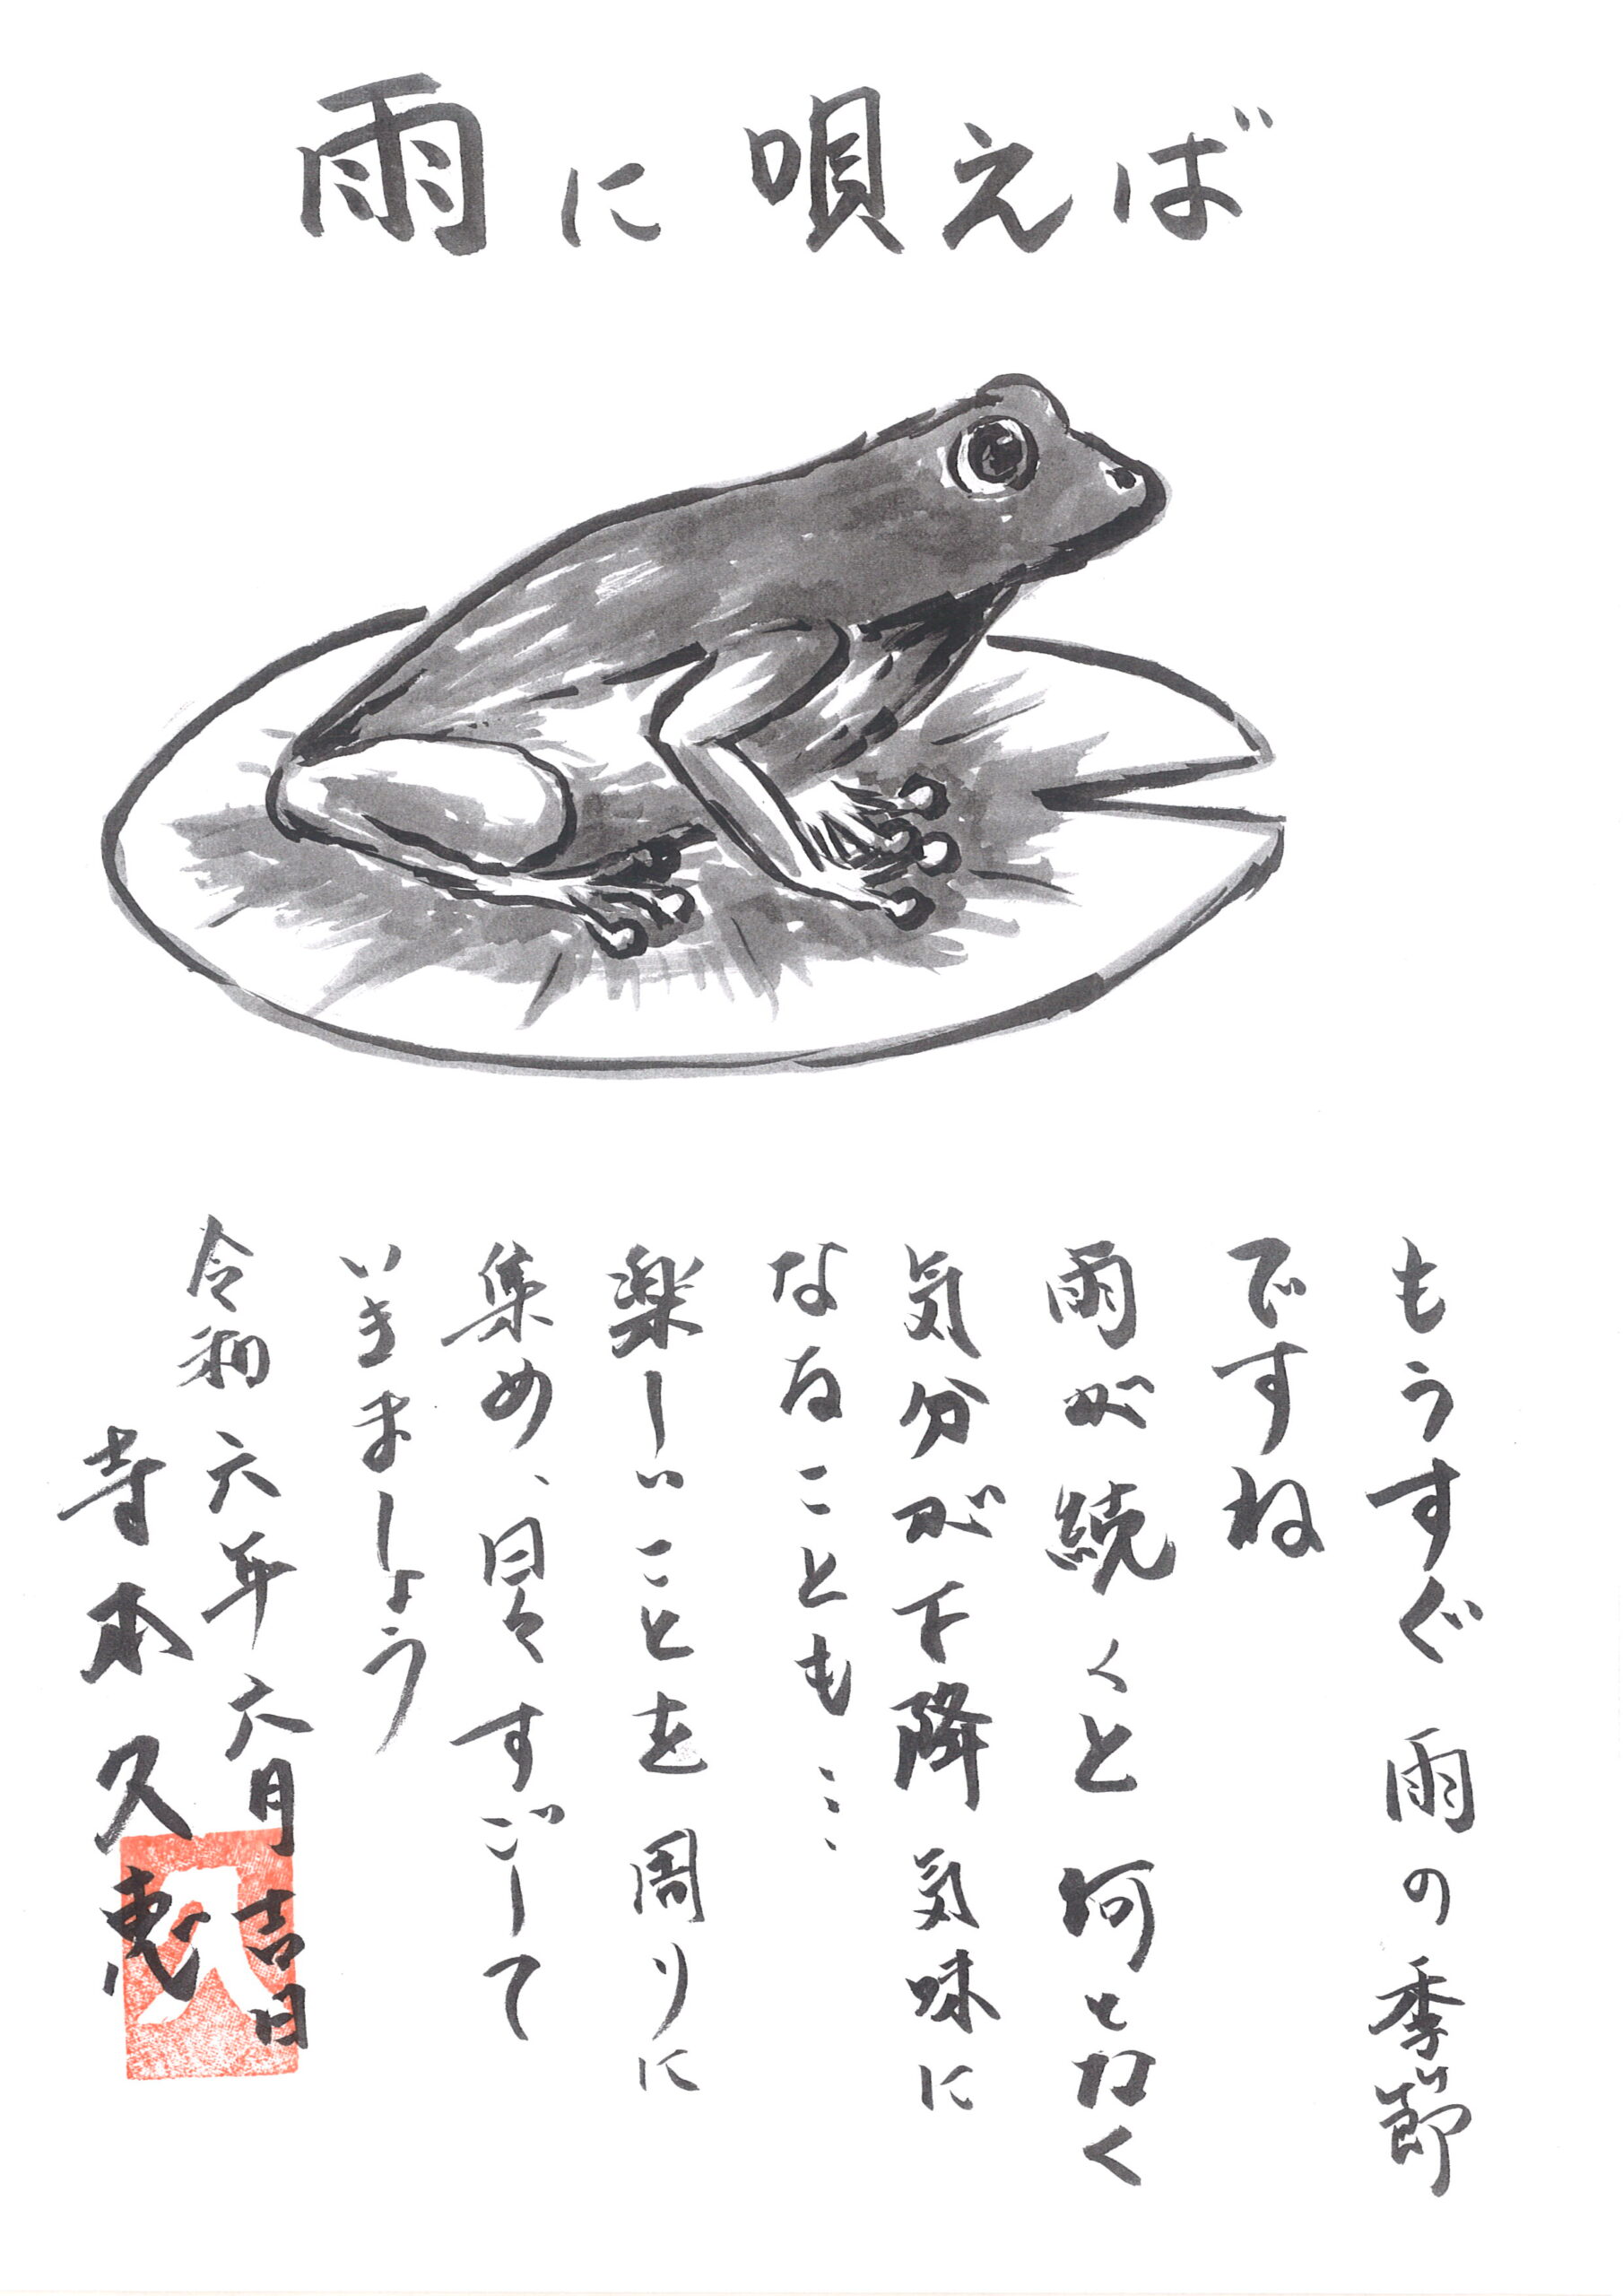 雨に唄えば
もうすぐ 雨の季節
ですね
雨が続くと何となく
気分が下降気味に
なることも……
楽しいことを周りに
集め、日々すごして
いきましょう
令和六年六月吉日
寺本久恵